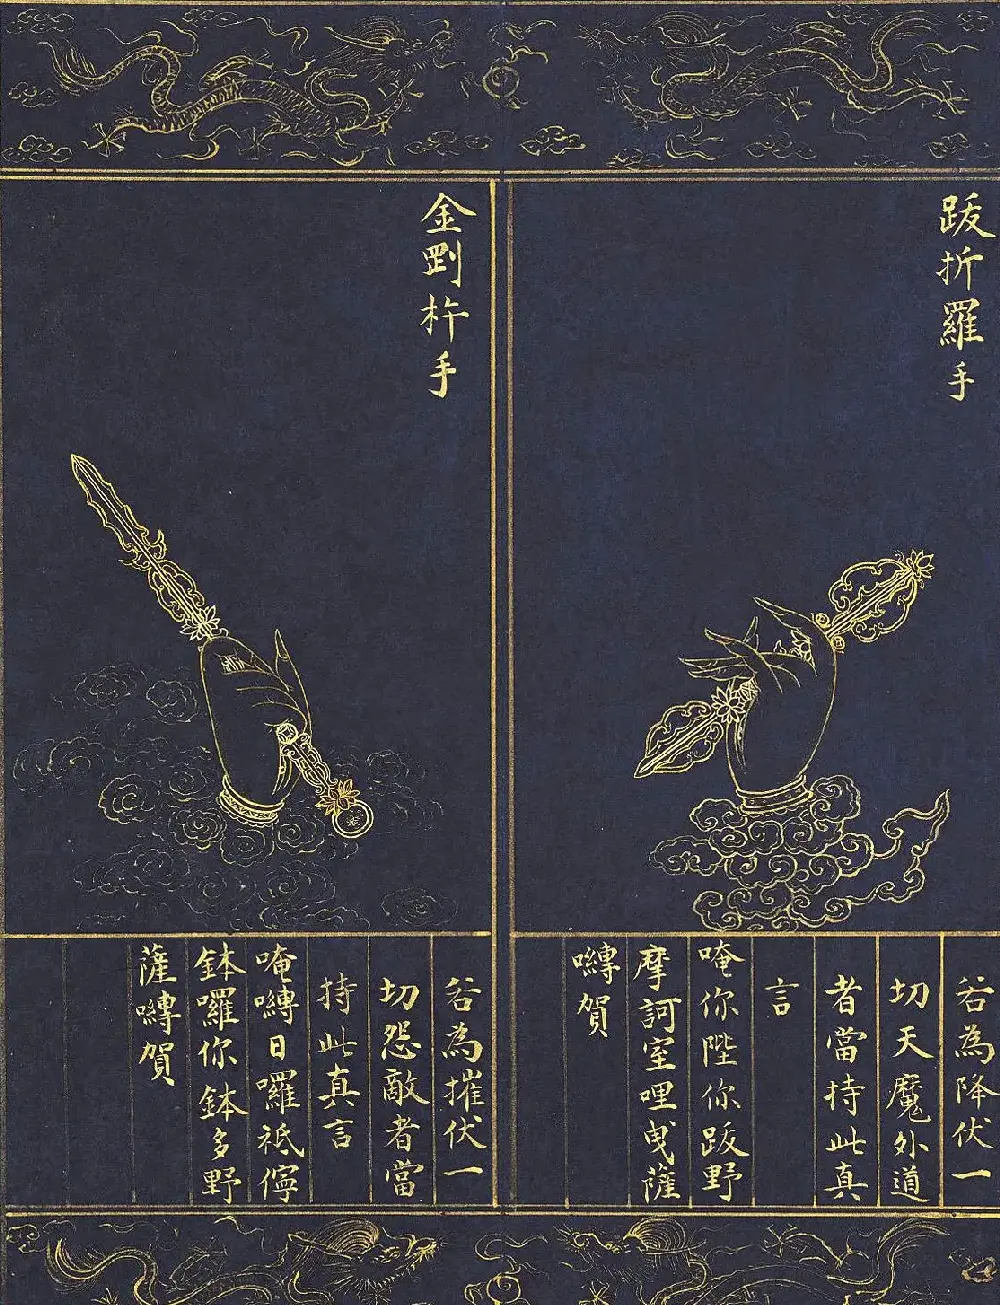 跋折羅手
若為降伏一
切天魔外道
者當持此真
言
唵你陛你跋野
摩訶室哩曳薩
嚩賀
金剛杵手
若為摧伏一
切怨敵者當
持此真言
唵嚩日囉祗儜
鉢囉你鉢多野
薩嚩賀